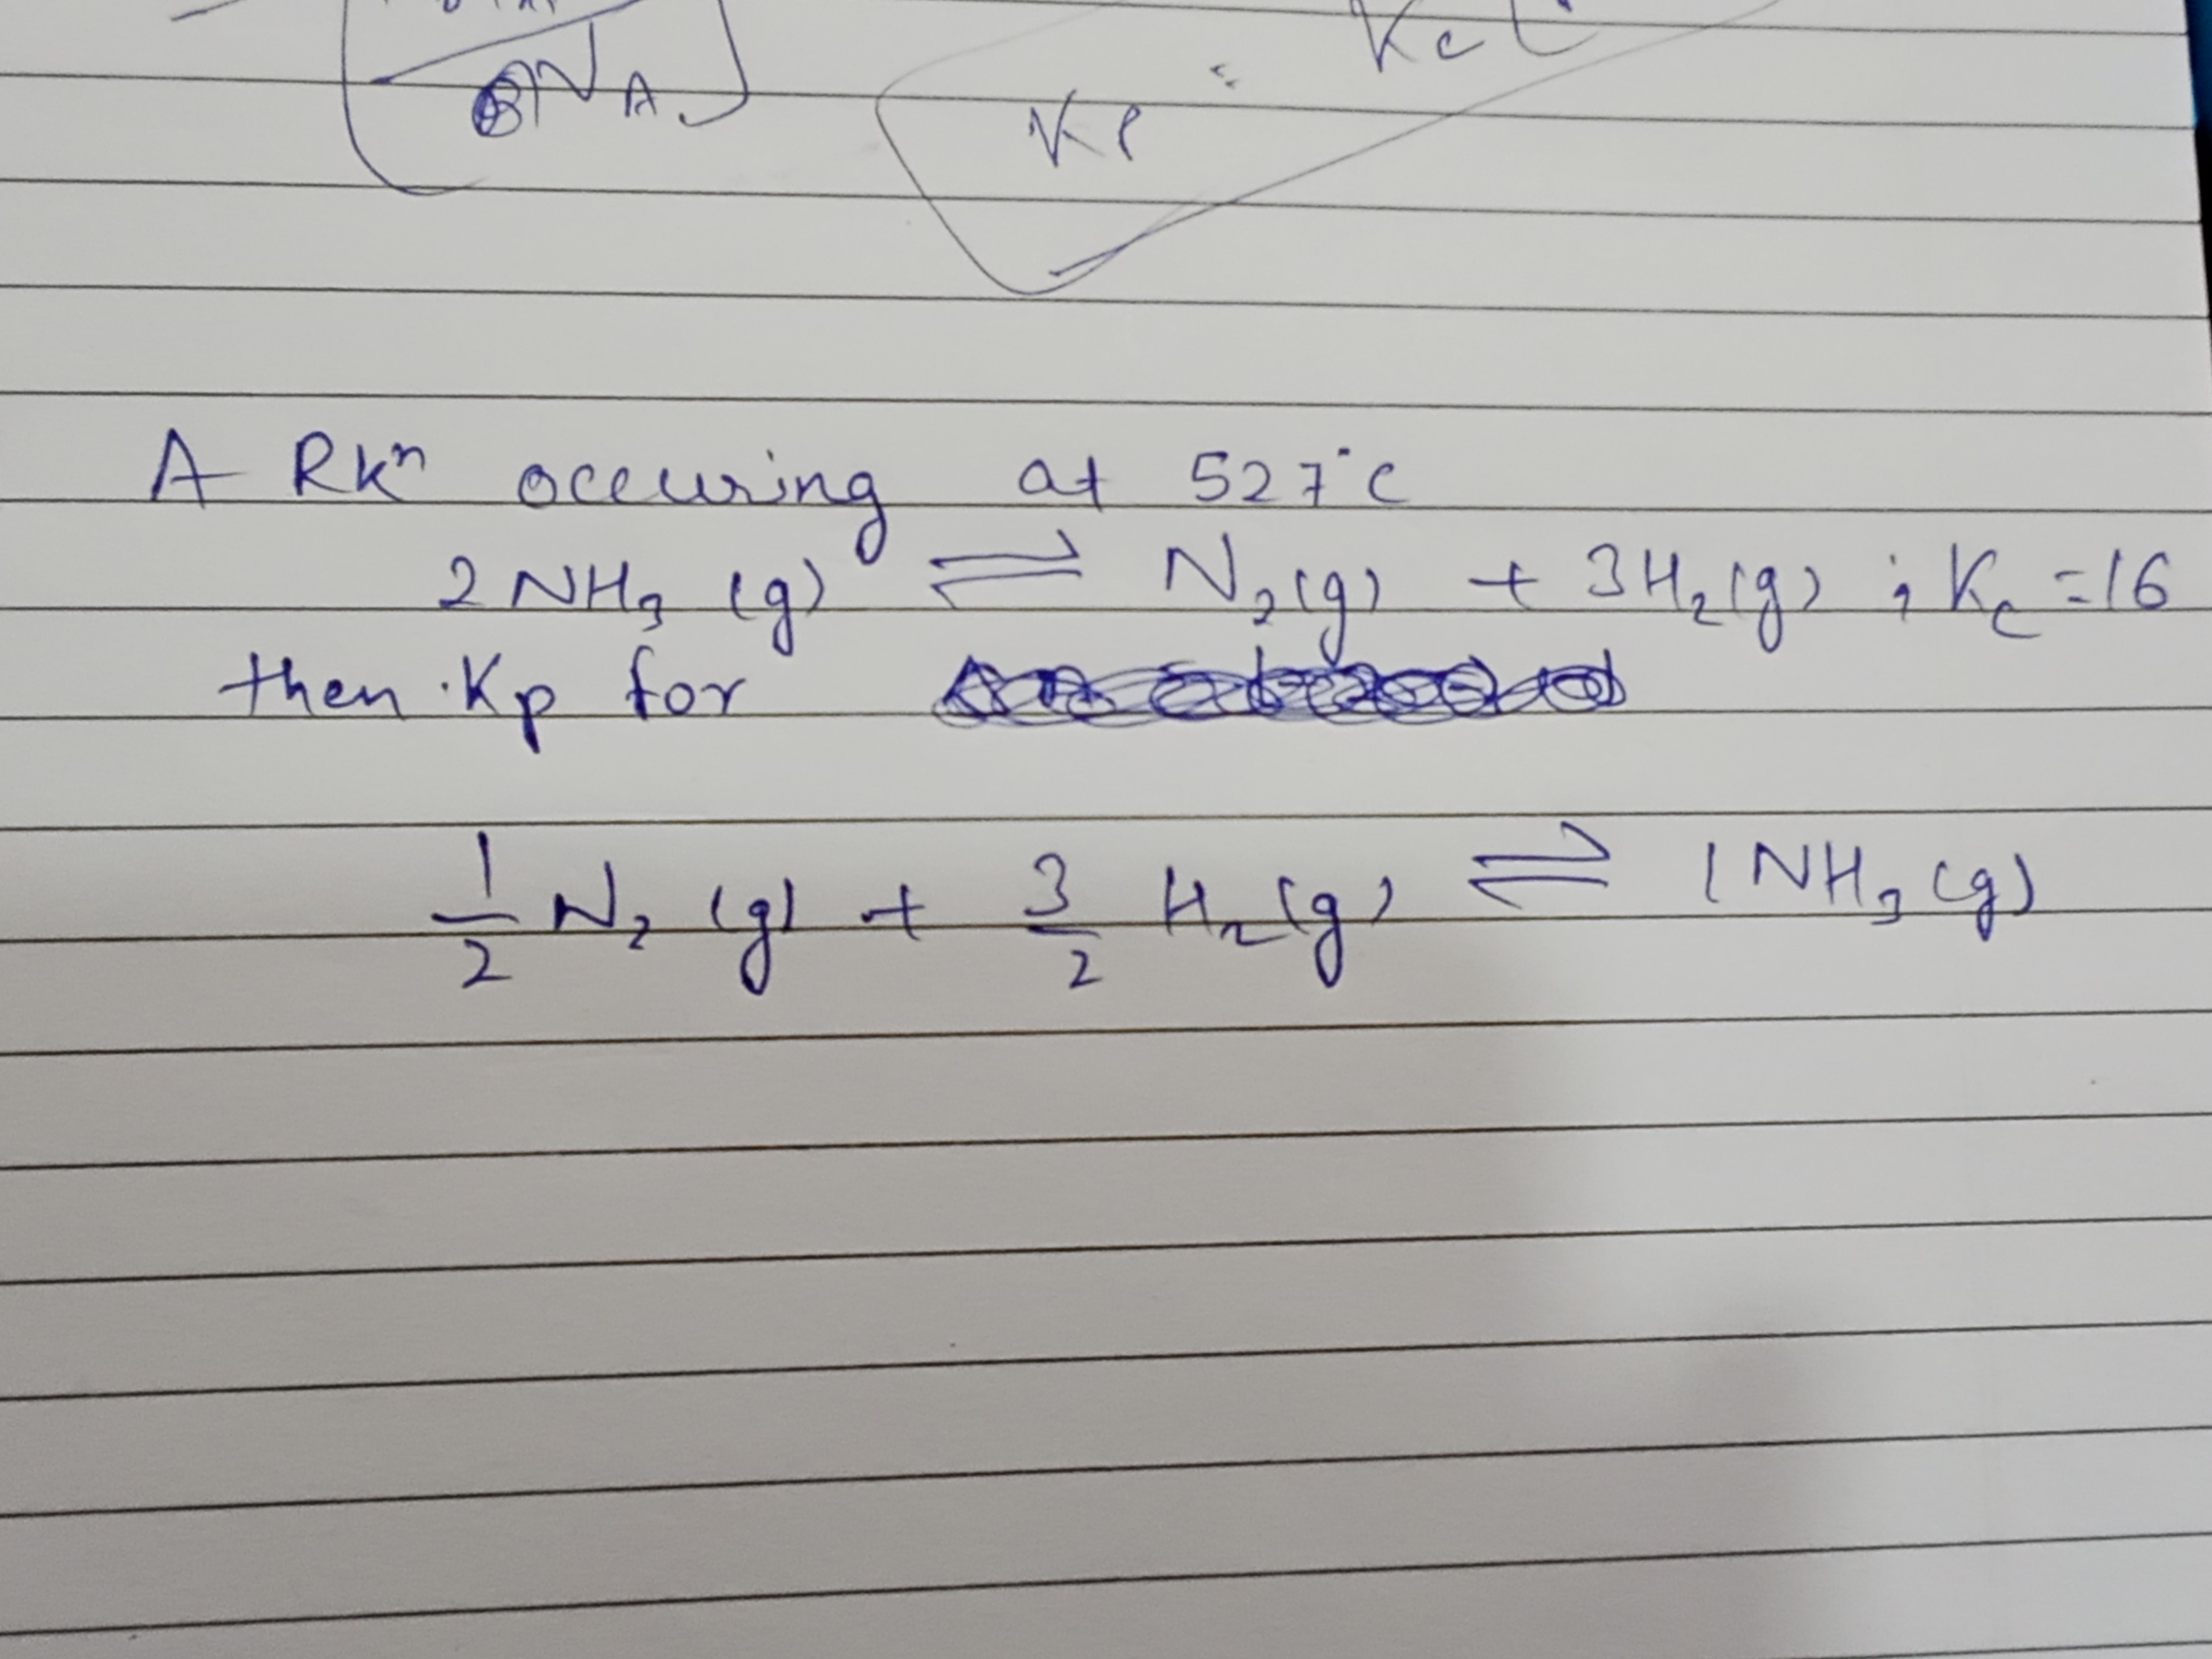 NA
Kc
Kp
A Rkⁿ occuring at 527°C
2NH₃ (g) ⇌ N₂(g) + 3H₂(g) ; K_c = 16
then Kp for
1/2 N₂ (g) + 3/2 H₂(g) ⇌ 1NH₃ (g)